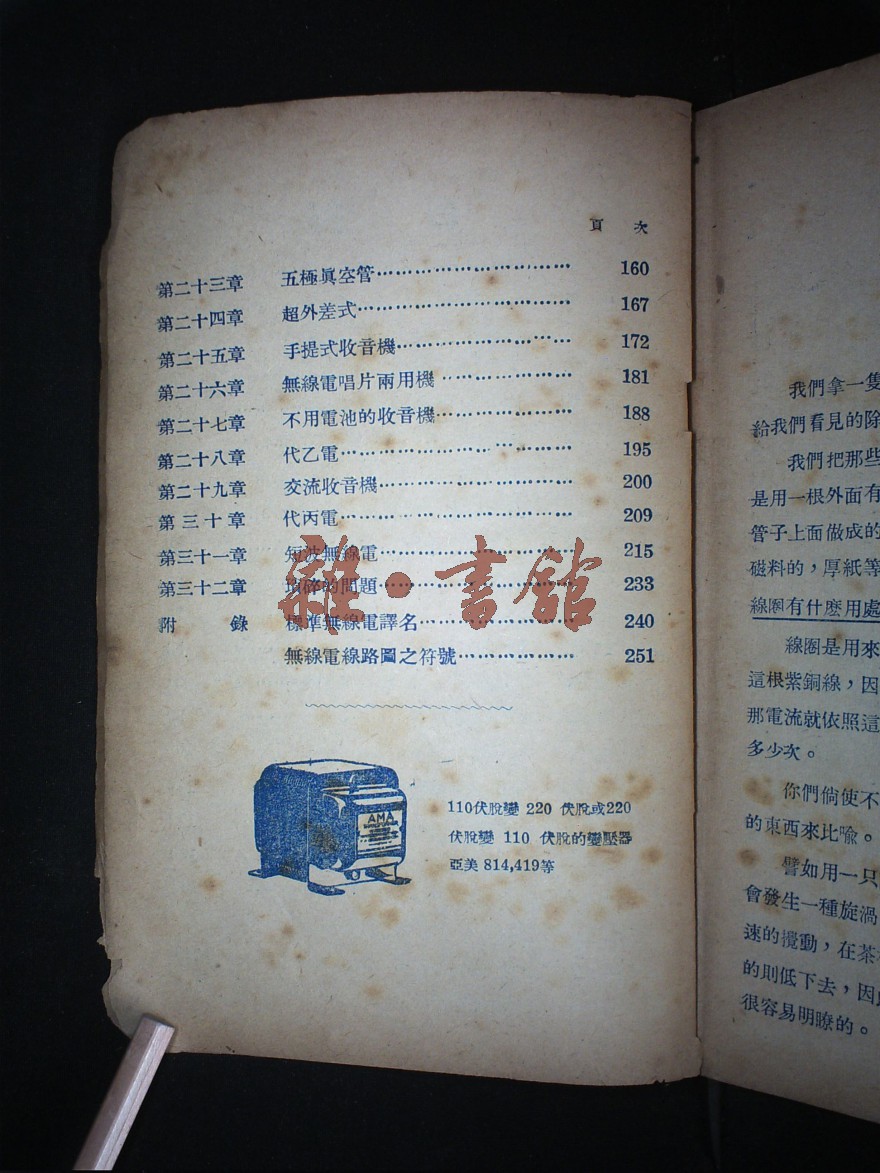 頁 次
第二十三章 五極眞空管 160
第二十四章 超外差式 167
第二十五章 手提式收音機 172
第二十六章 無線電唱片兩用機 181
第二十七章 不用電池的收音機 188
第二十八章 代乙電 195
第二十九章 交流收音機 200
第三十章 代丙電 209
第三十一章 短波無線電 215
第三十二章 瑣碎的問題 233
附錄 標準無線電譯名 240
無線電線路圖之符號 251
雜·書館
AMA
110伏脫變 220 伏脫或220
伏脫變 110 伏脫的變壓器
亞美 814,419等
我們拿一隻
給我們看見的除
我們把那些
是用一根外面有
管子上面做成的
磁料的，厚紙等
線圈有什麽用處
線圈是用來
這根紫銅線，因
那電流就依照這
多少次。
你們倘使不
的東西來比喩。
譬如用一只
會發生一種旋渦
速的攪動，在茶
的則低下去，因
很容易明瞭的。